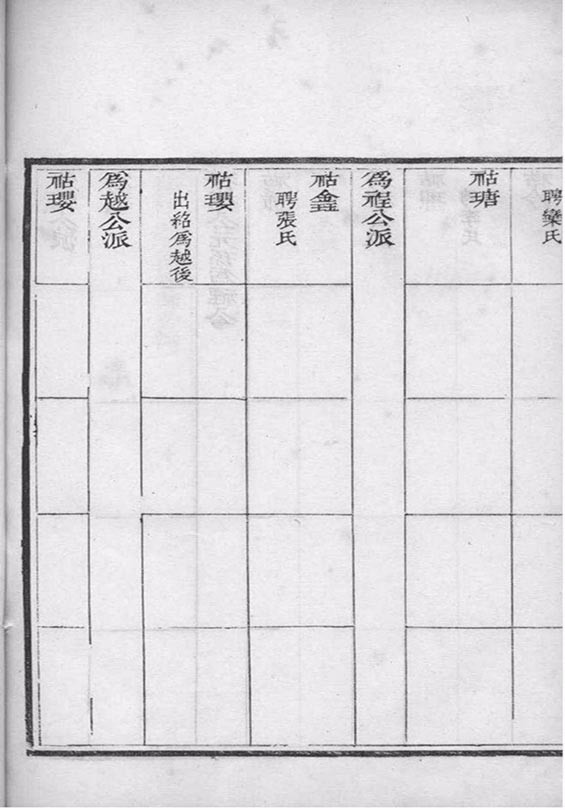 聘欒氏
祜瑭
爲程公派
祜鑫
聘張氏
祜瓔
出紹爲越後
爲越公派
祜瓔